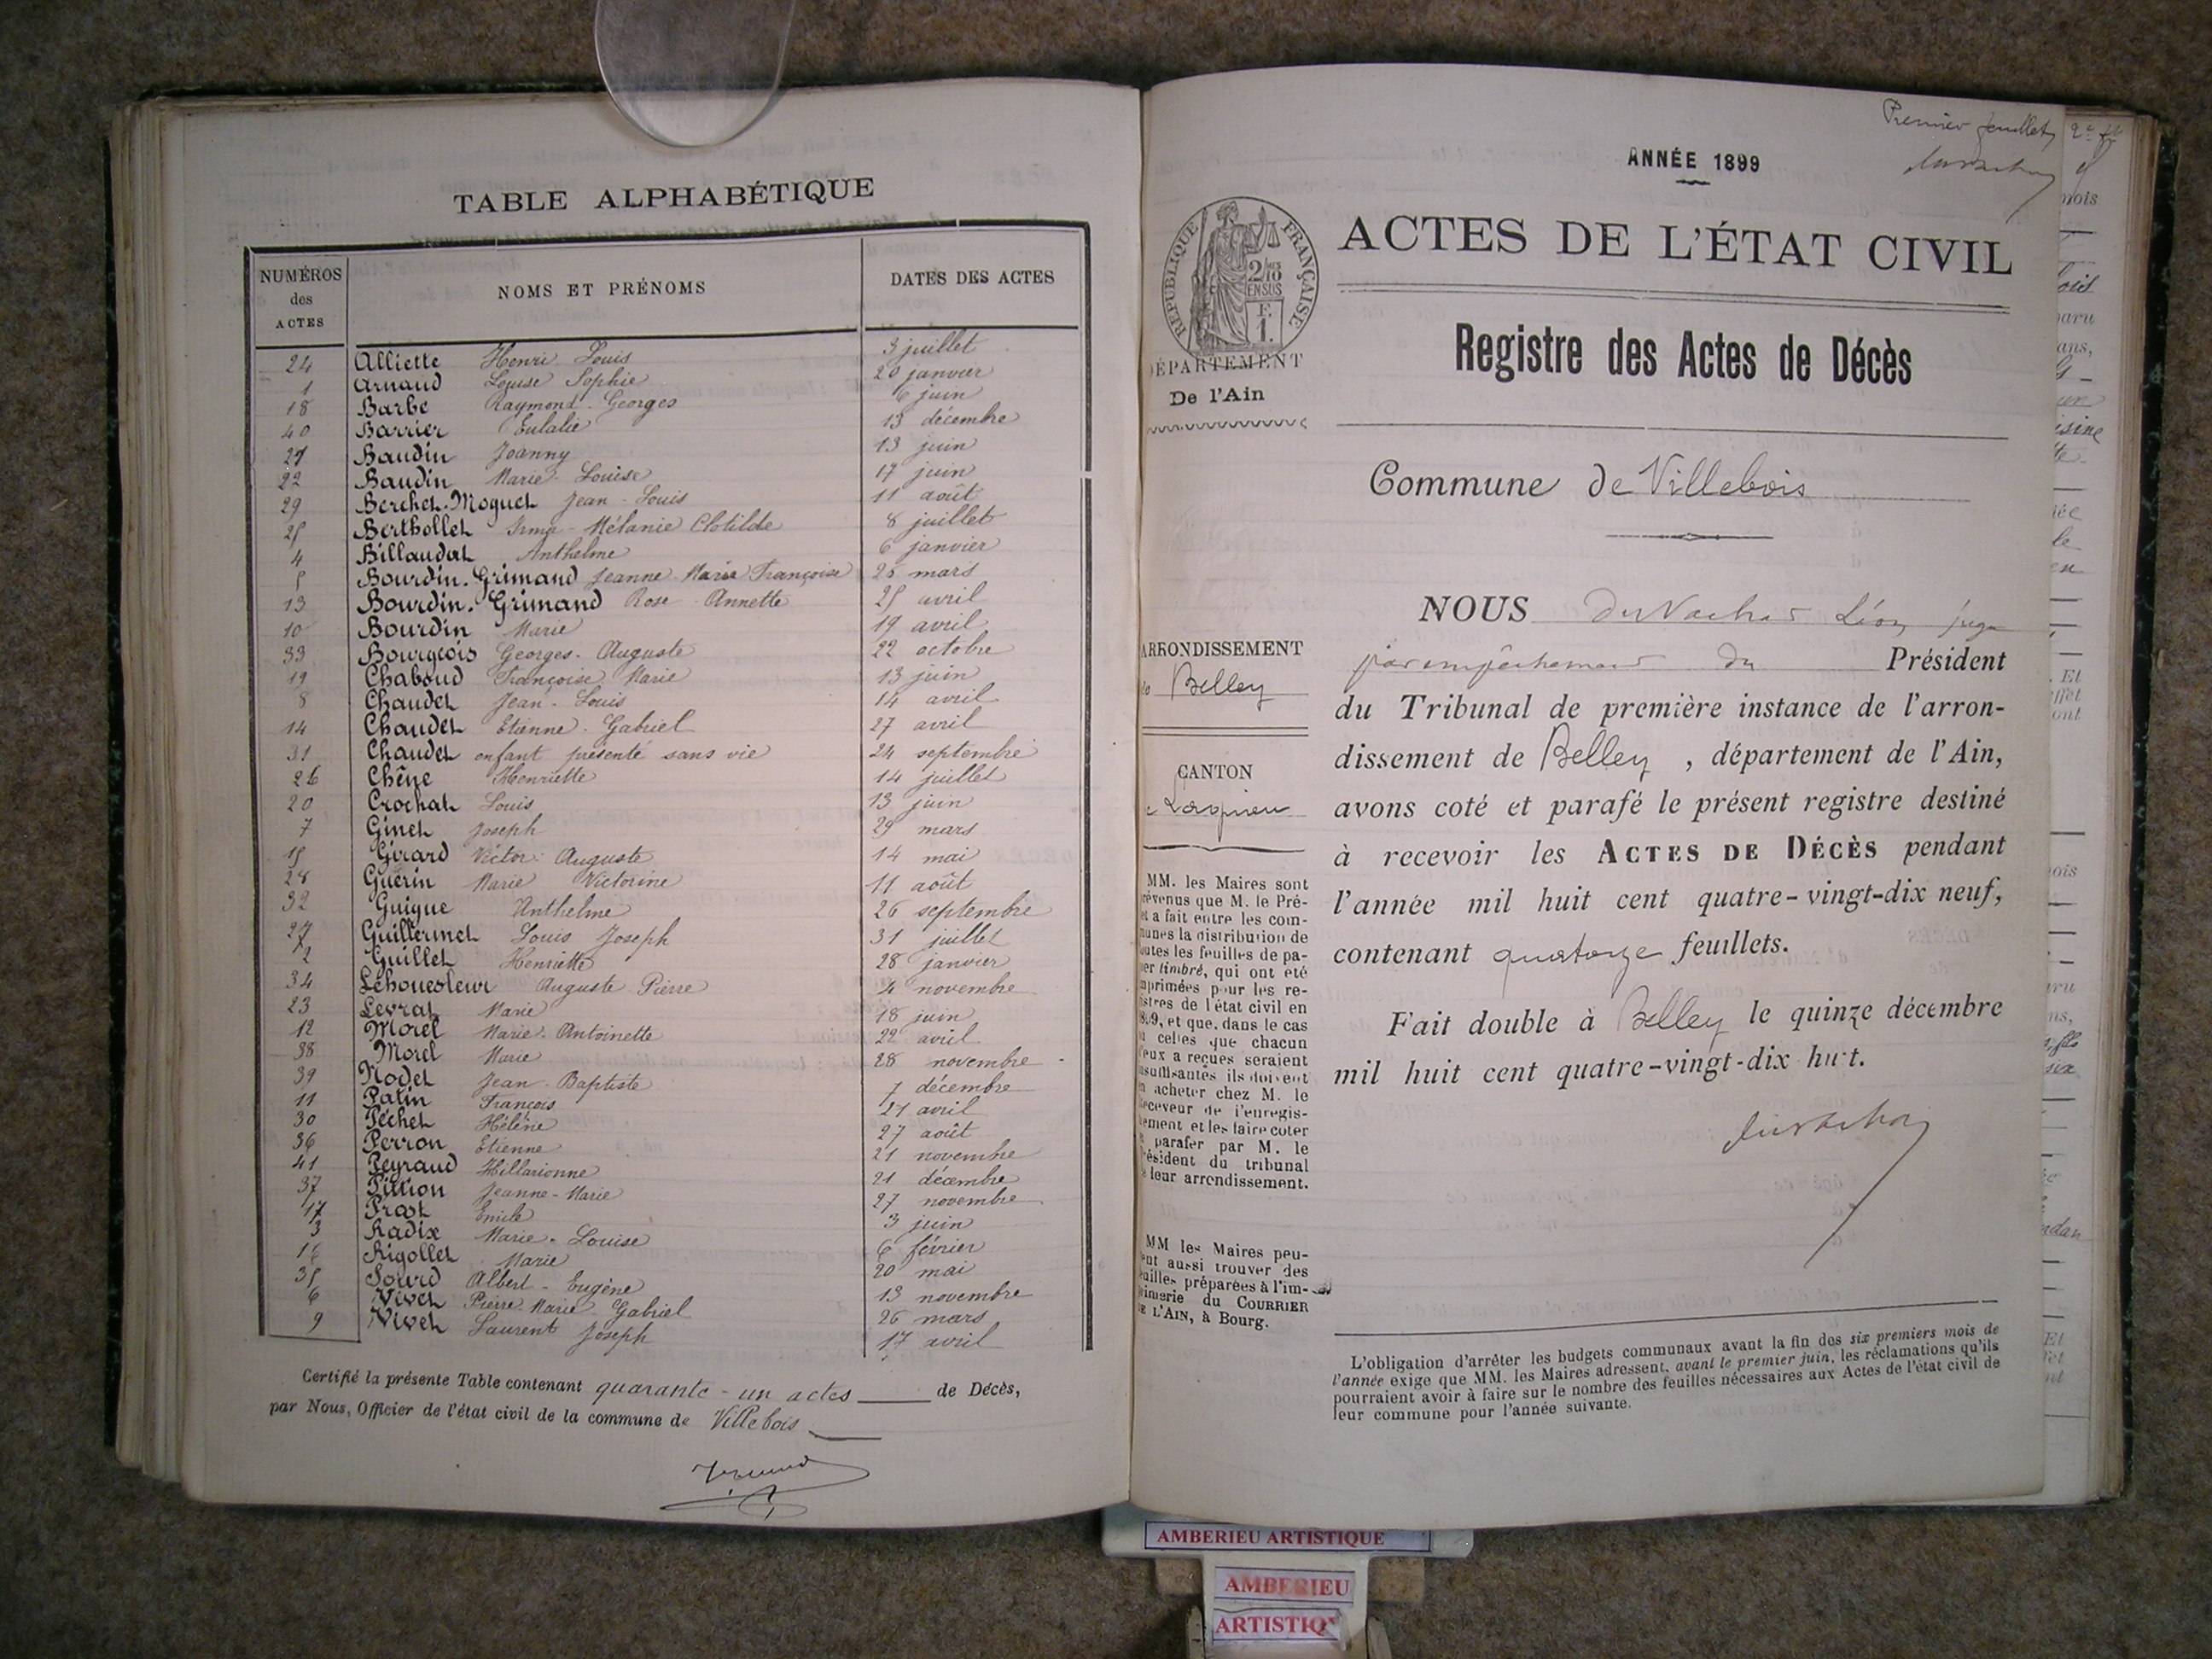 TABLE ALPHABÉTIQUE
NUMÉROS des ACTES NOMS ET PRÉNOMS DATES DES ACTES
24 Alliette Henri Louis 3 juillet
1 Arnaud Louise Sophie 20 janvier
18 Barbe Raymond Georges 6 juin
40 Barrier Eulalie 13 décembre
21 Baudin Joanny 13 juin
22 Baudin Marie Louise 17 juin
29 Berchet-Moguet Jean-Louis 11 août
25 Berthollet Irma-Mélanie Clotilde 8 juillet
4 Billaudat Anthelme 6 janvier
5 Bourdin-Grimand Jeanne Marie Françoise 25 mars
13 Bourdin-Grimand Rose Annette 25 avril
10 Bourdin Marie 19 avril
33 Bourgeois Georges-Auguste 22 octobre
19 Chaboud Françoise Marie 13 juin
8 Chaudet Jean-Louis 14 avril
14 Chaudet Etienne Gabriel 27 avril
31 Chaudet enfant présenté sans vie 24 septembre
26 Chêne Henriette 14 juillet
20 Crochat Louis 13 juin
7 Ginet Joseph 29 mars
15 Girard Victor Auguste 14 mai
28 Guérin Marie Victorine 11 août
32 Guigue Anthelme 26 septembre
27 Guillermet Louis Joseph 31 juillet
2 Guillet Henriette 28 janvier
34 Lehouesleur Auguste Pierre 4 novembre
23 Levrat Marie 18 juin
12 Morel Marie-Antoinette 22 avril
38 Morel Marie 28 novembre
39 Nodet Jean-Baptiste 7 décembre
11 Patin François 21 avril
30 Péchet Hélène 27 août
36 Perron Etienne 21 novembre
41 Peyraud Hillarionne 21 décembre
37 Pittion Jeanne-Marie 27 novembre
17 Prost Emile 3 juin
3 Radix Marie-Louise 6 février
16 Rigollet Marie 20 mai
35 Sourd Albert-Eugène 13 novembre
6 Vivet Pierre-Marie Gabriel 26 mars
9 Vivet Laurent Joseph 17 avril
Certifié la présente Table contenant quarante-un actes de Décès,
par Nous, Officier de l'état civil de la commune de Villebois
Premier feuillet
2e
ANNÉE 1899
ACTES DE L'ÉTAT CIVIL
RÉPUBLIQUE FRANÇAISE
2/10 EN SUS
F.
1.
DÉPARTEMENT
De l'Ain
Registre des Actes de Décès
Commune de Villebois
ARRONDISSEMENT
de Belley
CANTON
Lagnieu
NOUS Duvachat Léon juge
par empêchement du Président
du Tribunal de première instance de l'arron-
dissement de Belley, département de l'Ain,
avons coté et parafé le présent registre destiné
à recevoir les ACTES DE DÉCÈS pendant
l'année mil huit cent quatre-vingt-dix neuf,
contenant quatorze feuillets.
Fait double à Belley le quinze décembre
mil huit cent quatre-vingt-dix huit.
MM. les Maires sont
révenus que M. le Pré-
et a fait entre les com-
munes la distribution de
outes les feuilles de pa-
ier timbré, qui ont été
mprimées pour les re-
istres de l'état civil en
1899, et que, dans le cas
ù celles que chacun
d'eux a reçues seraient
nsuffisantes ils doivent
n acheter chez M. le
eceveur de l'enregis-
ement et les faire coter
t parafer par M. le
résident du tribunal
e leur arrondissement.
MM les Maires peu-
ent aussi trouver des
euilles préparées à l'im-
rimerie du COURRIER
DE L'AIN, à Bourg.
L'obligation d'arrêter les budgets communaux avant la fin des six premiers mois de
l'année exige que MM. les Maires adressent, avant le premier juin, les réclamations qu'ils
pourraient avoir à faire sur le nombre des feuilles nécessaires aux Actes de l'état civil de
leur commune pour l'année suivante.
AMBERIEU ARTISTIQUE
AMBERIEU
ARTISTIQ